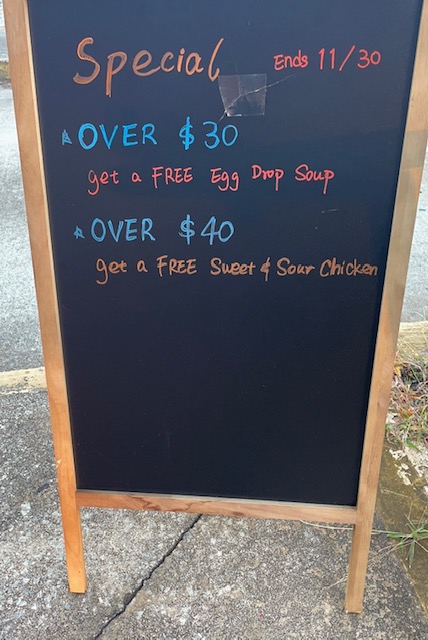 Special Ends 11/30
OVER $30
get a FREE Egg Drop Soup
OVER $40
get a FREE Sweet & Sour Chicken